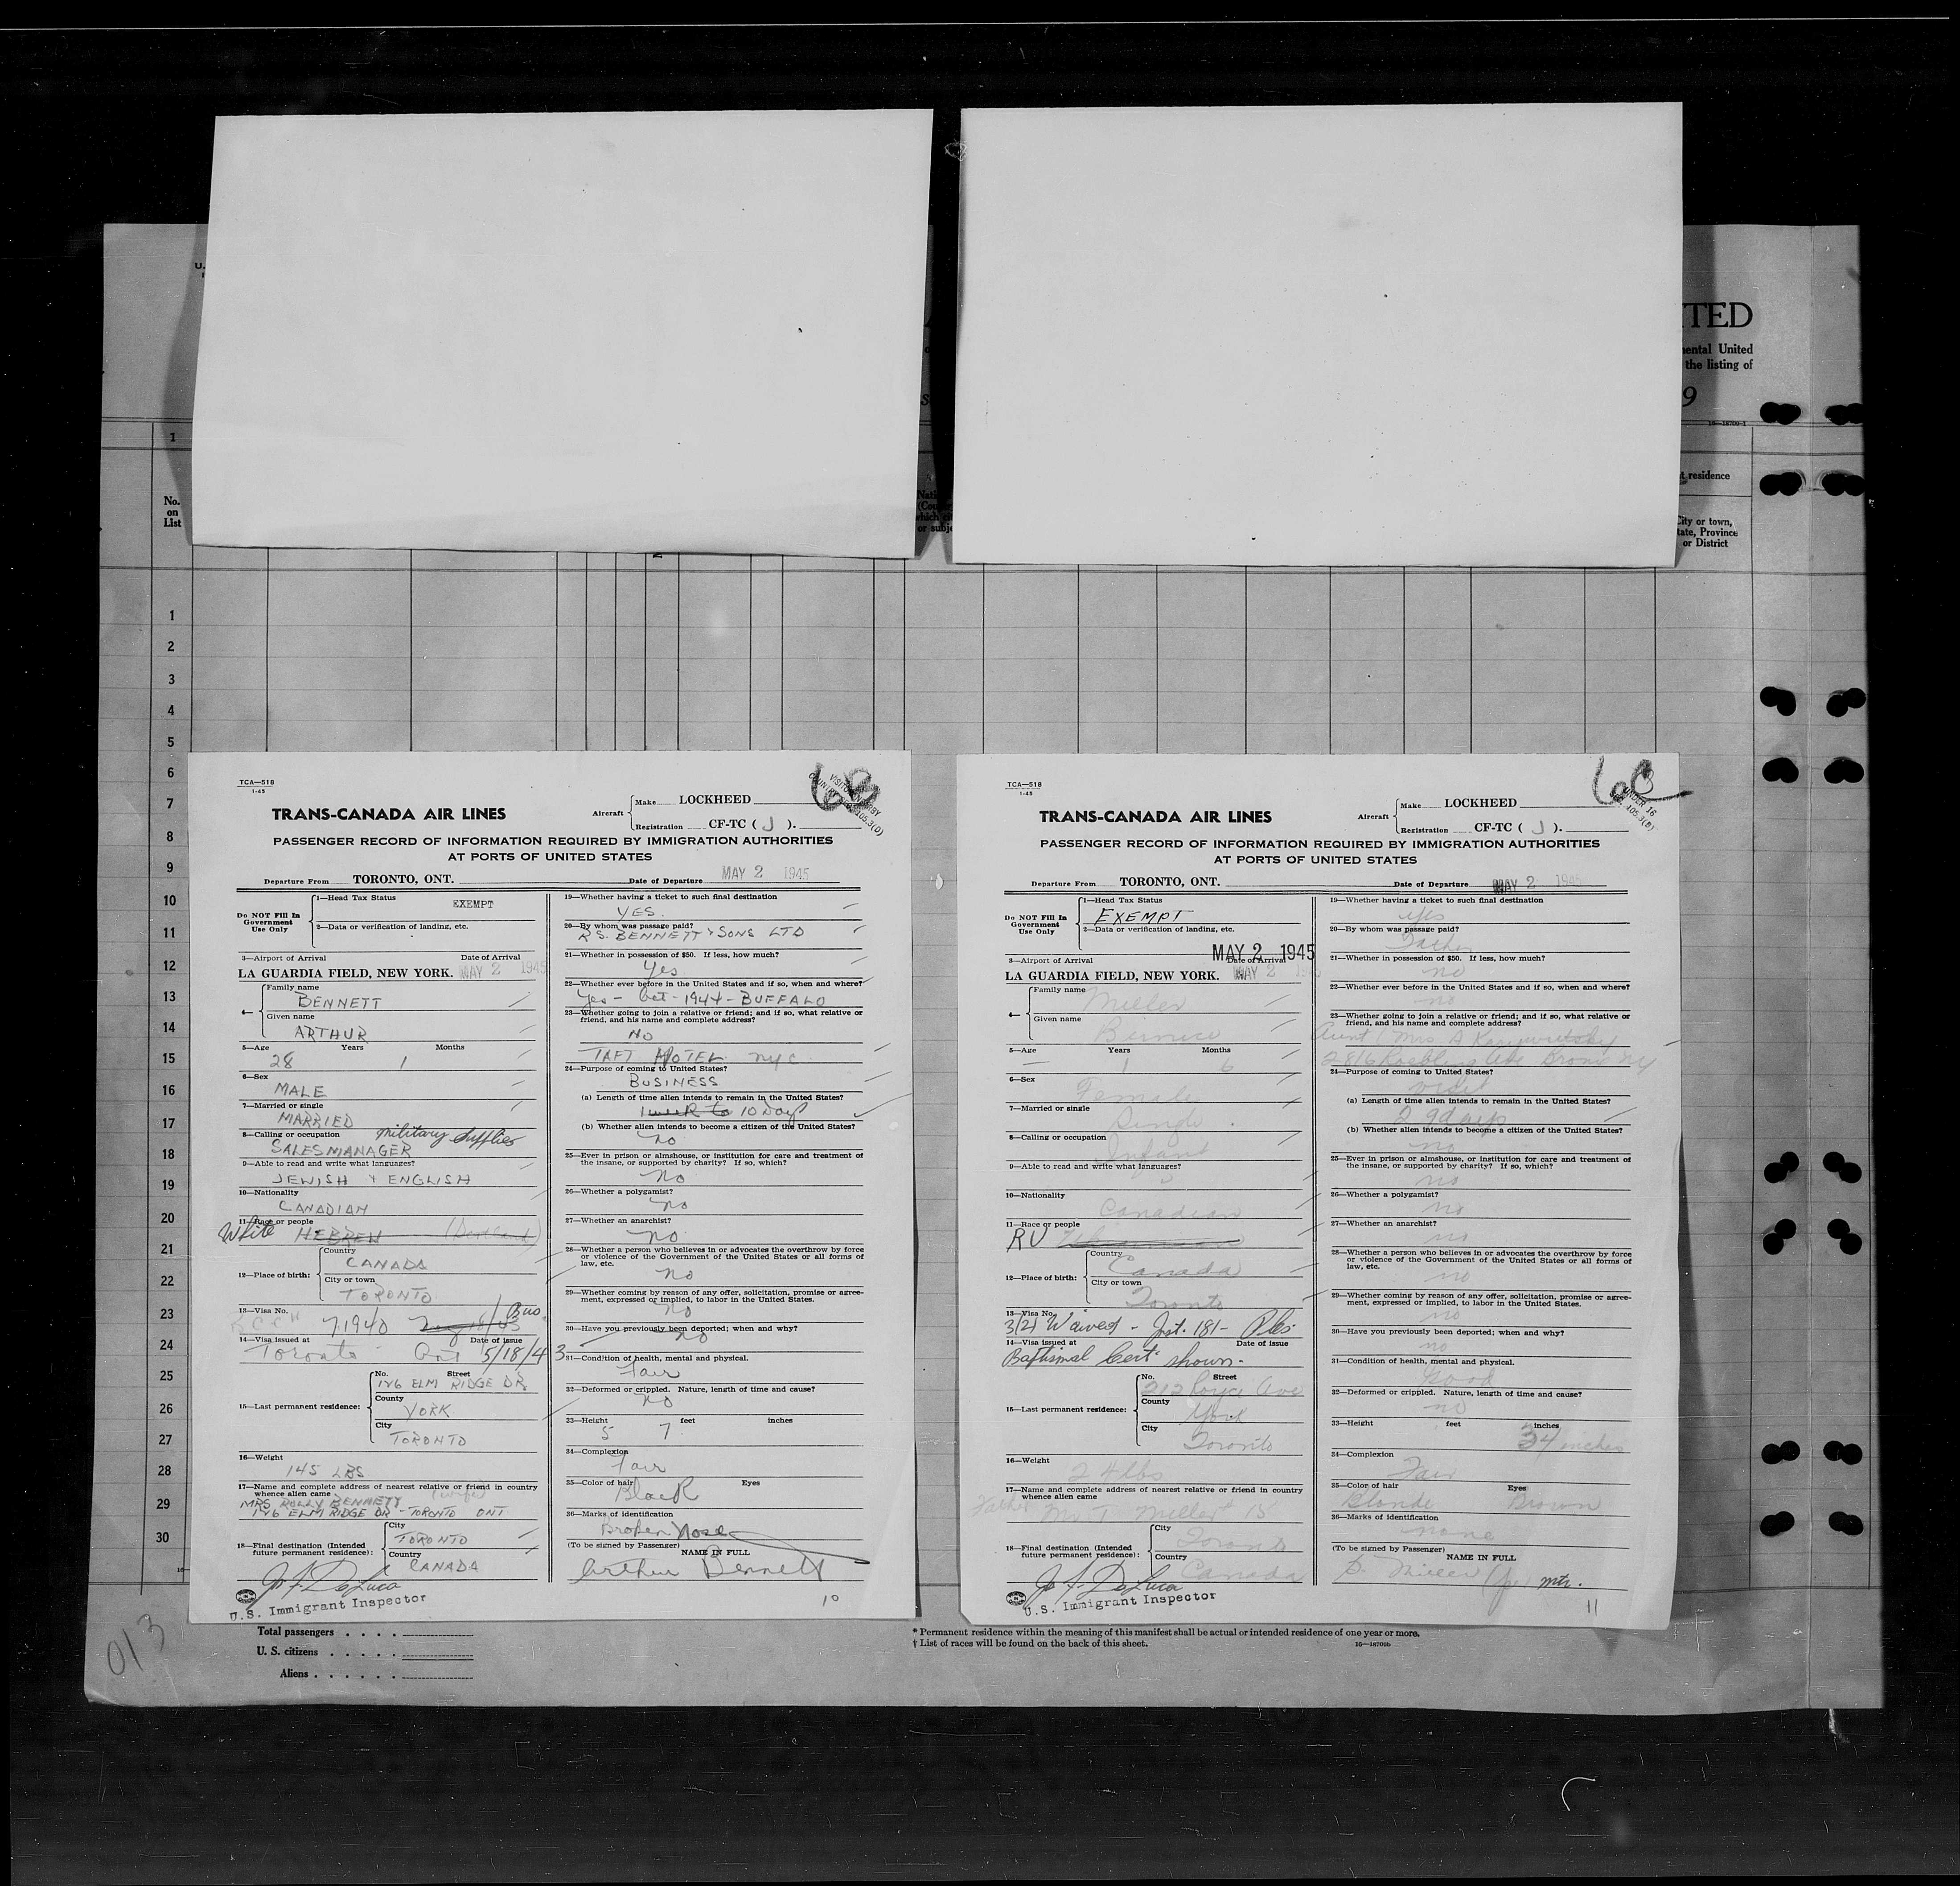 U.
TED
ental United
the listing of
9
16—18700-1
1
No.
on
List
2
t residence
City or town,
tate, Province
or District
1
2
3
4
5
6
7
8
9
10
11
12
13
14
15
16
17
18
19
20
21
22
23
24
25
26
27
28
29
30
TCA—518
1-45
TRANS-CANADA AIR LINES
Aircraft
Make LOCKHEED
Registration CF-TC ( J ).
PASSENGER RECORD OF INFORMATION REQUIRED BY IMMIGRATION AUTHORITIES
AT PORTS OF UNITED STATES
Departure From TORONTO, ONT. Date of Departure MAY 2 1945
Do NOT Fill In
Government
Use Only
1—Head Tax Status EXEMPT
2—Data or verification of landing, etc.
3—Airport of Arrival Date of Arrival
LA GUARDIA FIELD, NEW YORK. MAY 2 1945
4—
Family name
BENNETT
Given name
ARTHUR
5—Age Years Months
28 1
6—Sex
MALE
7—Married or single
MARRIED
8—Calling or occupation Military Supplies
SALESMANAGER
9—Able to read and write what languages?
JEWISH & ENGLISH
10—Nationality
CANADIAN
11—Race or people
White HEBREW
12—Place of birth:
Country
CANADA
City or town
TORONTO
13—Visa No. Bus
71940
14—Visa issued at Date of issue
Toronto Ont 5/18/43
15—Last permanent residence:
No. Street
126 ELM RIDGE DR.
County
YORK
City
TORONTO
16—Weight
145 LBS
17—Name and complete address of nearest relative or friend in country
whence alien came (wife)
MRS. BENNETT
126 ELM RIDGE DR - TORONTO ONT
18—Final destination (Intended
future permanent residence):
City
TORONTO
Country
CANADA
Jo. F. DeLuca
U.S. Immigrant Inspector
19—Whether having a ticket to such final destination
YES.
20—By whom was passage paid?
R.S. BENNETT & SONS LTD
21—Whether in possession of $50. If less, how much?
Yes
22—Whether ever before in the United States and if so, when and where?
Yes - Oct - 1944 - BUFFALO
23—Whether going to join a relative or friend; and if so, what relative or
friend, and his name and complete address?
NO
TAFT HOTEL NYC
24—Purpose of coming to United States?
BUSINESS
(a) Length of time alien intends to remain in the United States?
1 week to 10 Days
(b) Whether alien intends to become a citizen of the United States?
no
25—Ever in prison or almshouse, or institution for care and treatment of
the insane, or supported by charity? If so, which?
No
26—Whether a polygamist?
No
27—Whether an anarchist?
no.
28—Whether a person who believes in or advocates the overthrow by force
or violence of the Government of the United States or all forms of
law, etc.
no
29—Whether coming by reason of any offer, solicitation, promise or agree-
ment, expressed or implied, to labor in the United States.
no
30—Have you previously been deported; when and why?
no
31—Condition of health, mental and physical.
fair
32—Deformed or crippled. Nature, length of time and cause?
NO
33—Height feet inches
5 7
34—Complexion
fair
35—Color of hair Eyes
Black
36—Marks of identification
Broken Nose
(To be signed by Passenger)
NAME IN FULL
Arthur Bennett
10
TCA—518
1-45
TRANS-CANADA AIR LINES
Aircraft
Make LOCKHEED
Registration CF-TC ( J ).
UNDER 16
PASSENGER RECORD OF INFORMATION REQUIRED BY IMMIGRATION AUTHORITIES
AT PORTS OF UNITED STATES
Departure From TORONTO, ONT. Date of Departure MAY 2 1945
Do NOT Fill In
Government
Use Only
1—Head Tax Status
EXEMPT
2—Data or verification of landing, etc.
MAY 2 1945
3—Airport of Arrival Date of Arrival
LA GUARDIA FIELD, NEW YORK. MAY 2
4—
Family name
Miller
Given name
Bernice
5—Age Years Months
1 6
6—Sex
Female
7—Married or single
Single
8—Calling or occupation
Infant
9—Able to read and write what languages?
10—Nationality
Canadian
11—Race or people
RU
12—Place of birth:
Country
Canada
City or town
Toronto
13—Visa No.
3(2) Waived - Inst. 181 - Pls.
14—Visa issued at Date of issue
Baptismal Cert. shown.
15—Last permanent residence:
No. Street
212 Royce Ave
County
York
City
Toronto
16—Weight
24 lbs
17—Name and complete address of nearest relative or friend in country
whence alien came
Father Mr T. Miller 15
18—Final destination (Intended
future permanent residence):
City
Toronto
Country
Canada
Jo. F. DeLuca
U.S. Immigrant Inspector
19—Whether having a ticket to such final destination
yes
20—By whom was passage paid?
Father
21—Whether in possession of $50. If less, how much?
no
22—Whether ever before in the United States and if so, when and where?
no
23—Whether going to join a relative or friend; and if so, what relative or
friend, and his name and complete address?
Aunt Mrs A
2816 Roebling Ave Bronx NY
24—Purpose of coming to United States?
visit
(a) Length of time alien intends to remain in the United States?
29 days
(b) Whether alien intends to become a citizen of the United States?
no
25—Ever in prison or almshouse, or institution for care and treatment of
the insane, or supported by charity? If so, which?
no
26—Whether a polygamist?
no
27—Whether an anarchist?
no
28—Whether a person who believes in or advocates the overthrow by force
or violence of the Government of the United States or all forms of
law, etc.
no
29—Whether coming by reason of any offer, solicitation, promise or agree-
ment, expressed or implied, to labor in the United States.
no
30—Have you previously been deported; when and why?
no
31—Condition of health, mental and physical.
good
32—Deformed or crippled. Nature, length of time and cause?
no
33—Height feet inches
34 inches
34—Complexion
Fair
35—Color of hair Eyes
Blonde Brown
36—Marks of identification
none
(To be signed by Passenger)
NAME IN FULL
B. Miller mtr.
11
013
Total passengers . . . .
U. S. citizens . . . . .
Aliens . . . . . .
* Permanent residence within the meaning of this manifest shall be actual or intended residence of one year or more.
† List of races will be found on the back of this sheet.
16—18700b